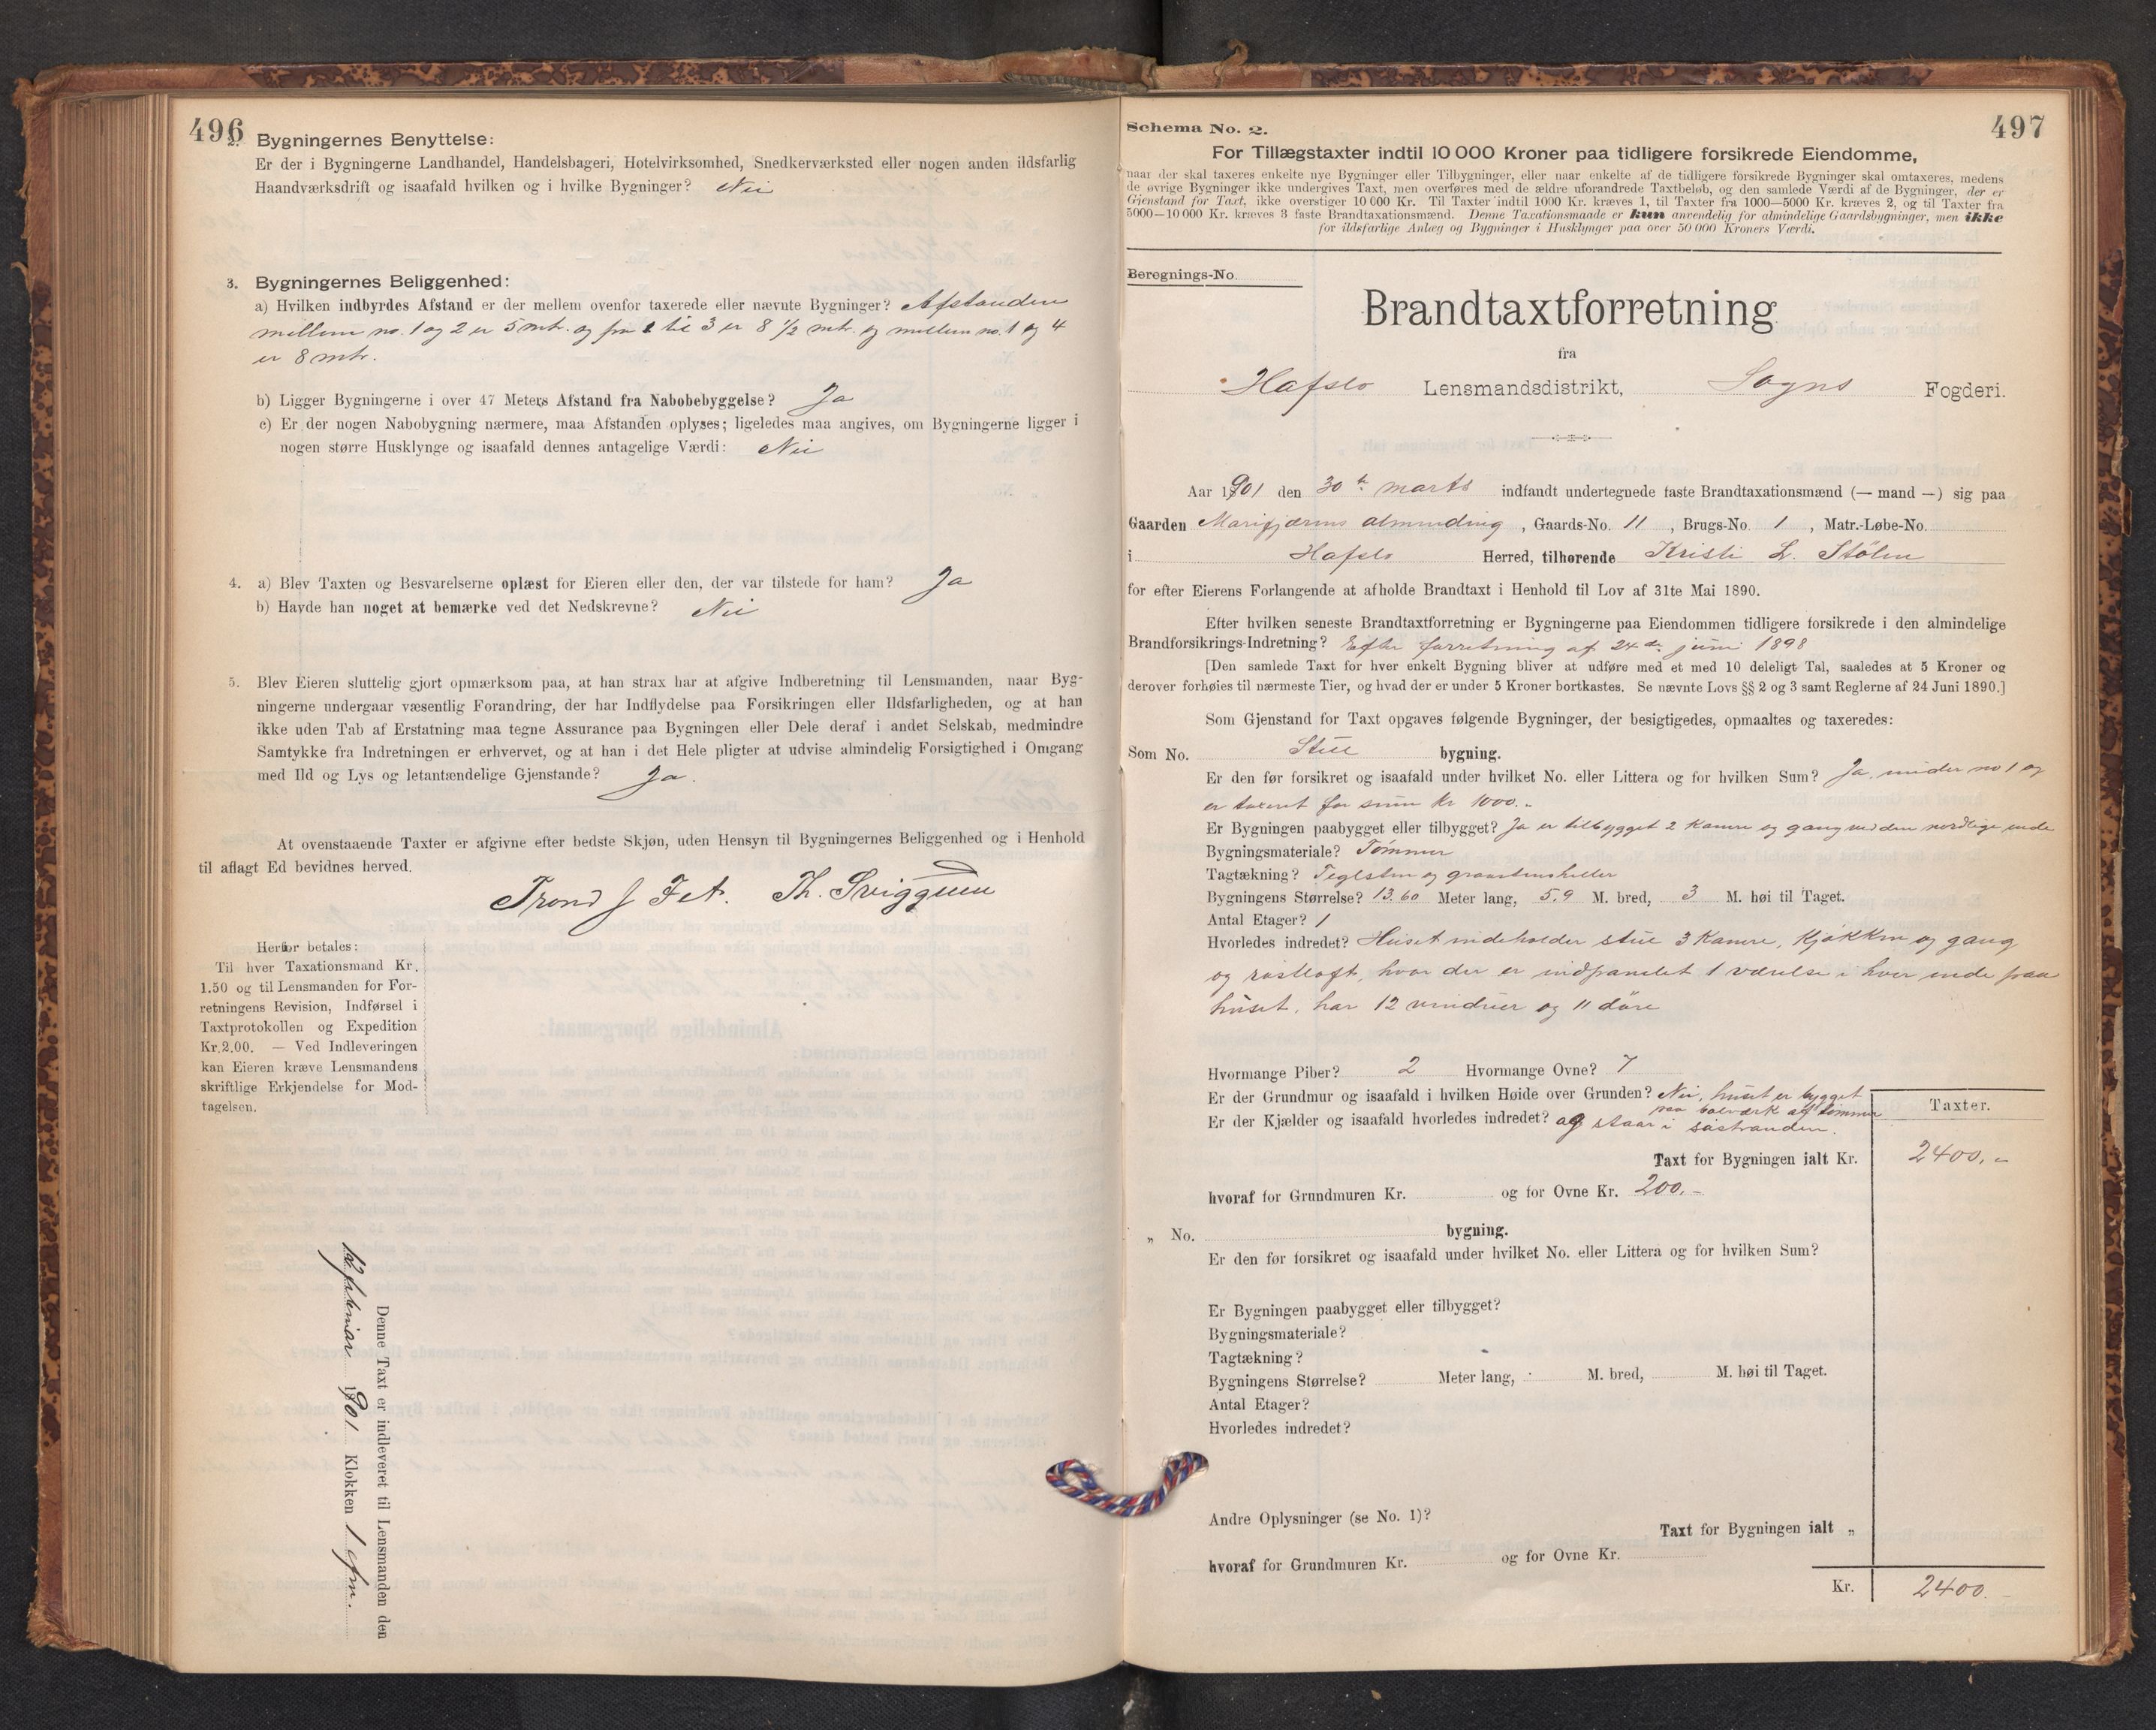 496
2. Bygningernes Benyttelse:
Er der i Bygningerne Landhandel, Handelsbageri, Hotelvirksomhed, Snedkerværksted eller nogen anden ildsfarlig
Haandværksdrift og isaafald hvilken og i hvilke Bygninger? Nei
3. Bygningernes Beliggenhed:
a) Hvilken indbyrdes Afstand er der mellem ovenfor taxerede eller nævnte Bygninger? Afstanden
mellem no. 1 og 2 er 5 mtr. og fra 2 til 3 er 8 1/2 mtr. og mellem no. 1 og 4
er 8 mtr.
b) Ligger Bygningerne i over 47 Meters Afstand fra Nabobebyggelse? Ja
c) Er der nogen Nabobygning nærmere, maa Afstanden oplyses; ligeledes maa angives, om Bygningerne ligger i
nogen større Husklynge og isaafald dennes antagelige Værdi: Nei
4. a) Blev Taxten og Besvarelserne oplæst for Eieren eller den, der var tilstede for ham? Ja
b) Havde han noget at bemærke ved det Nedskrevne? Nei
5. Blev Eieren sluttelig gjort opmærksom paa, at han strax har at afgive Indberetning til Lensmanden, naar Byg-
ningerne undergaar væsentlig Forandring, der har Indflydelse paa Forsikringen eller Ildsfarligheden, og at han
ikke uden Tab af Erstatning maa tegne Assurance paa Bygningen eller Dele deraf i andet Selskab, medmindre
Samtykke fra Indretningen er erhvervet, og at han i det Hele pligter at udvise almindelig Forsigtighed i Omgang
med Ild og Lys og letantændelige Gjenstande? Ja.
At ovenstaaende Taxter er afgivne efter bedste Skjøn, uden Hensyn til Bygningernes Beliggenhed og i Henhold
til aflagt Ed bevidnes herved.
Trond J Fet. Th. Sviggum
Herfor betales:
Til hver Taxationsmand Kr.
1.50 og til Lensmanden for For-
retningens Revision, Indførsel i
Taxtprotokollen og Expedition
Kr. 2.00. — Ved Indleveringen
kan Eieren kræve Lensmandens
skriftlige Erkjendelse for Mod-
tagelsen.
Denne Taxt er indleveret til Lensmanden den
1901 Klokken 1 efm.
497
Schema No. 2.
For Tillægstaxter indtil 10 000 Kroner paa tidligere forsikrede Eiendomme,
naar der skal taxeres enkelte nye Bygninger eller Tilbygninger, eller naar enkelte af de tidligere forsikrede Bygninger skal omtaxeres, medens
de øvrige Bygninger ikke undergives Taxt, men overføres med de ældre uforandrede Taxtbeløb, og den samlede Værdi af de Bygninger, der er
Gjenstand for Taxt, ikke overstiger 10 000 Kr. Til Taxter indtil 1000 Kr. kræves 1, til Taxter fra 1000—5000 Kr. kræves 2, og til Taxter fra
5000—10 000 Kr. kræves 3 faste Brandtaxationsmænd. Denne Taxationsmaade er kun anvendelig for almindelige Gaardsbygninger, men ikke
for ildsfarlige Anlæg og Bygninger i Husklynger paa over 50 000 Kroners Værdi.
Beregnings-No.
Brandtaxtforretning
fra
Hafslo Lensmandsdistrikt, Sogns Fogderi.
Aar 1901 den 30te marts indfandt undertegnede faste Brandtaxationsmænd (— mand —) sig paa
Gaarden Marifjærens almending, Gaards-No. 11, Brugs-No. 1, Matr.-Løbe-No.
i Hafslo Herred, tilhørende Kristi L. Stölen
for efter Eierens Forlangende at afholde Brandtaxt i Henhold til Lov af 31te Mai 1890.
Efter hvilken seneste Brandtaxtforretning er Bygningerne paa Eiendommen tidligere forsikrede i den almindelige
Brandforsikrings-Indretning? Efter forretning af 24de juni 1898
[Den samlede Taxt for hver enkelt Bygning bliver at udføre med et med 10 deleligt Tal, saaledes at 5 Kroner og
derover forhøies til nærmeste Tier, og hvad der er under 5 Kroner bortkastes. Se nævnte Lovs §§ 2 og 3 samt Reglerne af 24 Juni 1890.]
Som Gjenstand for Taxt opgaves følgende Bygninger, der besigtigedes, opmaaltes og taxeredes:
Som No. Stue bygning.
Er den før forsikret og isaafald under hvilket No. eller Littera og for hvilken Sum? Ja, under no 1 og
er taxeret for sum Kr 1000.-
Er Bygningen paabygget eller tilbygget? Ja er tilbygget 2 Kamre og gang ved den nordlige ende
Bygningsmateriale? Tömmer
Tagtækning? Teglsten og graastensheller
Bygningens Størrelse? 13,60 Meter lang, 5,9 M. bred, 3 M. høi til Taget.
Antal Etager? 1
Hvorledes indredet? Huset indeholder stue 3 Kamre, Kjøkken og gang
og röstloft, hvor der er indpanelet 1 værelse i hver ende paa
huset, har 12 vinduer og 11 döre
Hvormange Piber? 2 Hvormange Ovne? 7
Er der Grundmur og isaafald i hvilken Høide over Grunden? Nei, huset er bygget
paa bolværk af tömmer
Er der Kjælder og isaafald hvorledes indredet? og staar i söstranden.
Taxter.
Taxt for Bygningen ialt Kr. 2400,-
hvoraf for Grundmuren Kr. og for Ovne Kr. 200.-
„ No. bygning.
Er den før forsikret og isaafald under hvilket No. eller Littera og for hvilken Sum?
Er Bygningen paabygget eller tilbygget?
Bygningsmateriale?
Tagtækning?
Bygningens Størrelse? Meter lang, M. bred, M. høi til Taget.
Antal Etager?
Hvorledes indredet?
Andre Oplysninger (se No. 1)?
Taxt for Bygningen ialt „
hvoraf for Grundmuren Kr. og for Ovne Kr.
Kr. 2400.-